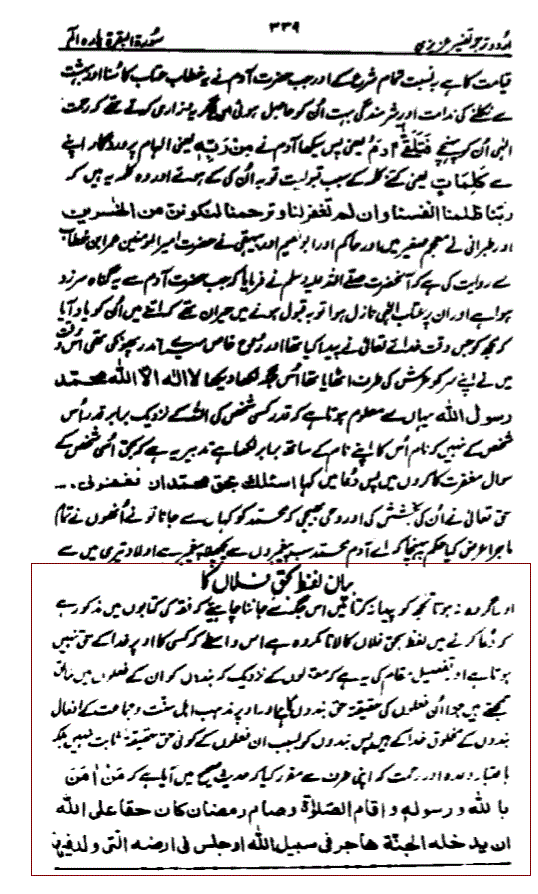 اردو ترجمہ تفسیر عزیزی ۳۳۹ سورۃ البقرۃ پارہ الم
قیامت کا ہے بہ نسبت تمام شرع کے اور جب حضرت آدم نے یہ خطاب عتاب کا سنا اور بہشت
سے نکلنے کی ندامت اور شرمندگی بہت اُن کو حاصل ہوئی اس گریہ زاری کرتے تھے کہ رحمت
الٰہی اُن کو پہنچے فَتَلَقّٰۤی اٰدَمُ یعنی پس سیکھا آدم نے مِنْ رَّبِّہٖ یعنی الہام پروردگار اپنے
سے کَلِمَاتٍ یعنی کتنے کلمہ کے سبب قبولیت توبہ اُن کی کے ہوئے اور وہ کلمہ یہ ہیں کہ
ربنا ظلمنا انفسنا وان لم تغفر لنا وترحمنا لنکونن من الخسرین
اور طبرانی نے معجم صغیر میں اور حاکم اور ابو نعیم اور بیہقی نے حضرت امیر المومنین عمر ابن خطاب
سے روایت کی ہے کہ آنحضرت صلے اللہ علیہ وسلم نے فرمایا کہ جب حضرت آدم سے یہ گناہ سرزد
ہوا ہے اور ان پر عتاب الٰہی نازل ہوا توبہ قبول ہونے میں حیران تھے کہ اتنے میں اُن کو یاد آیا
کہ مجھ کو جس وقت خدائے تعالیٰ نے پیدا کیا تھا اور رُوح خاص میرے اندر پھونکی تھی اُس وقت
میں نے اپنے سر کو عرش کی طرف اٹھایا تھا اُس جگہ لکھا دیکھا لا الہ الا اللہ محمد
رسول اللہ یہاں سے معلوم ہوتا ہے کہ قدر کسی شخص کی اللہ کے نزدیک برابر قدر اُس
شخص کے نہیں کہ نام اُس کا اپنے نام کے ساتھ برابر لکھا ہے تدبیر یہ ہے کہ بحق اُسی شخص کے
سوال مغفرت کا کروں میں پس دُعا میں کہا اسئلک بحق محمد ان تغفرلی...
حق تعالیٰ نے اُن کی بخشش کی اور وحی بھیجی کہ محمد کو کہاں سے جانا تو نے اُنھوں نے تمام
ماجرا عرض کیا حکم پہنچا کہ اے آدم محمد سب پیغمبروں سے پچھلا پیغمبر ہے اولاد تیری میں سے
بیان لفظ بحق فلاں کا
اور اگر وہ نہ ہوتا تجھ کو پیدا نہ کرتا میں اس جگہ سے جاننا چاہیئے کہ فقہ کی کتابوں میں مذکور ہے
کہ دُعا کرنے میں لفظ بحق فلاں کا لانا مکروہ ہے اس واسطے کہ کسی کا اوپر خدا کے حق نہیں
ہوتا ہے اور تفصیل مقام کی یہ ہے کہ معتزلوں کے نزدیک کہ بندوں کو ان کے فعلوں میں خالق
سمجھتے ہیں جزا اُن فعلوں کی حقیقۃً حق بندوں کا ہے اور اوپر مذہب اہل سنت وجماعت کے افعال
بندوں کے مخلوق خدا کے ہیں پس بندوں کو بسبب ان فعلوں کے کوئی حق حقیقۃً ثابت نہیں بلکہ
باعتبار وعدہ اور رحمت کے اپنی طرف سے مقرر کیا کہ حدیث صحیح میں آیا ہے کہ مَنْ اٰمَنَ
باللہ ورسولہ واقام الصلوٰۃ وصام رمضان کان حقا علی اللہ
ان یدخلہ الجنۃ ھاجر فی سبیل اللہ او جلس فی ارضہ التی ولد فیہا